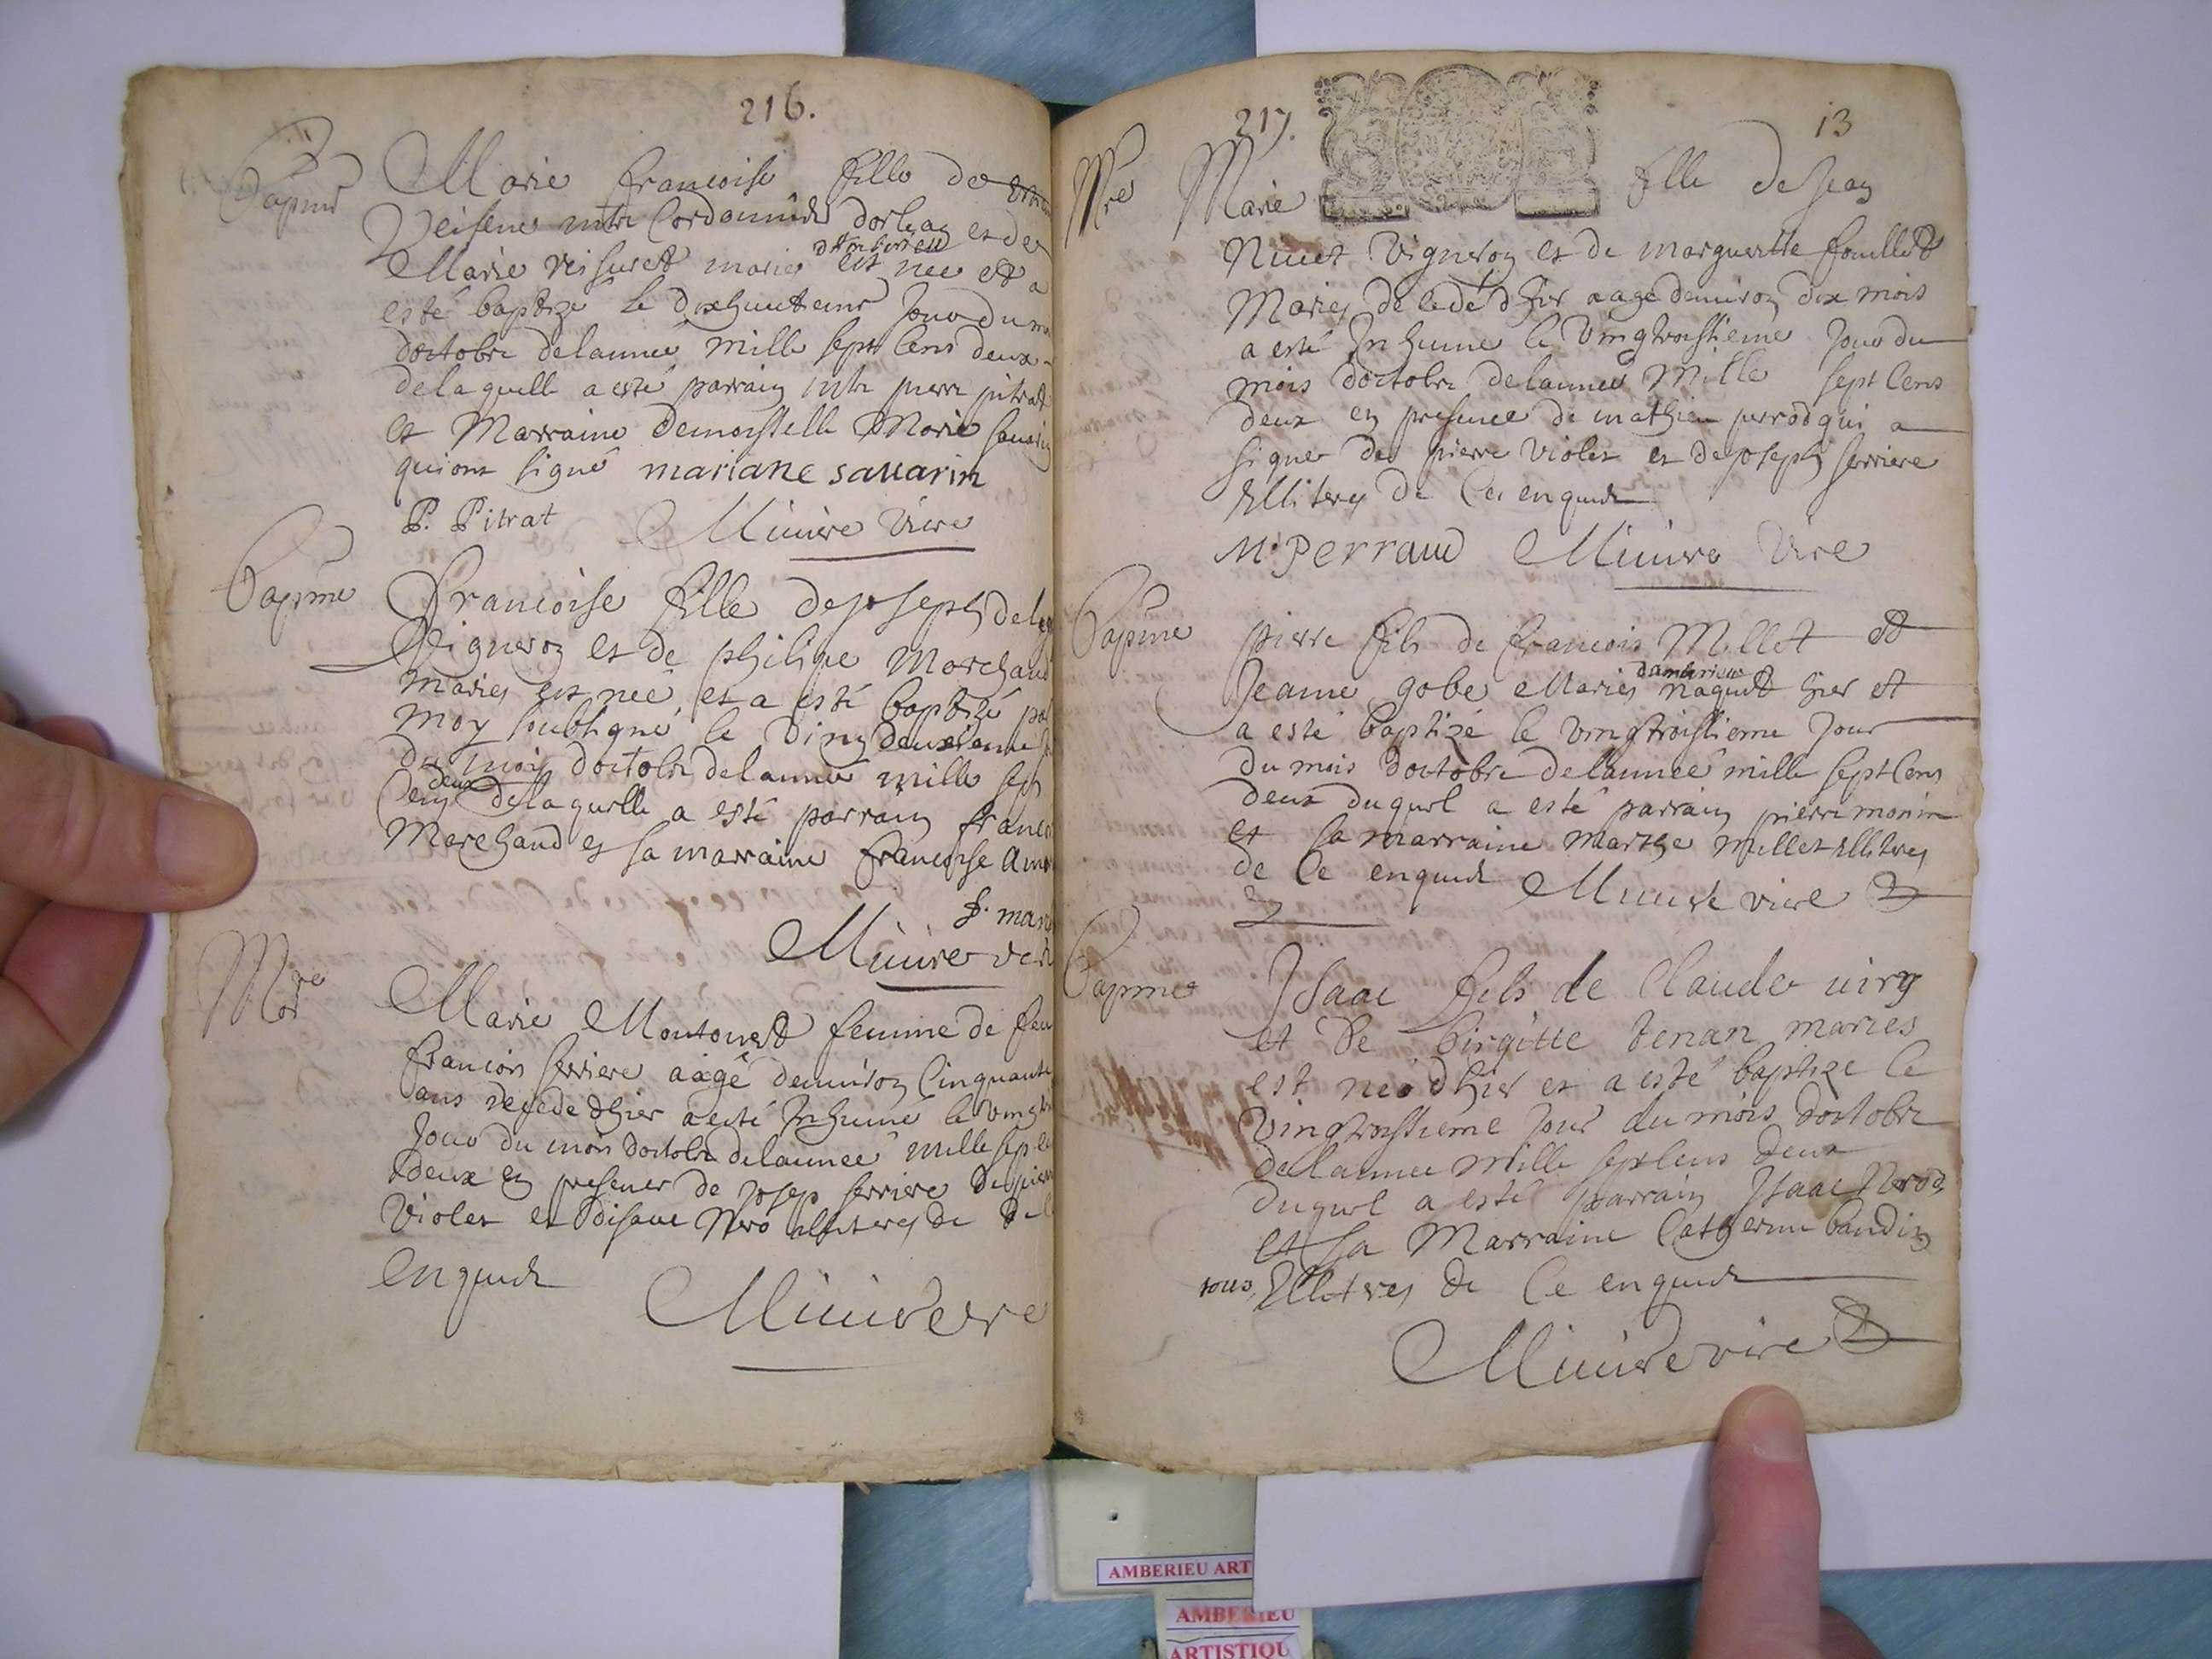 216.
Bapme
Marie francoise fille de
Veisene mtre Cordonnier et de
Marie Veisuret maries est nee et a
d'Amberieu
esté baptizé le dixhuitieme Jour du
doctobre delannee mille sept Cens deux
delaquelle a esté parrain mtre pierre pitrat
et Marraine Demoiselle Marie sauarin
qui ont signé mariane sauarin
P. Pitrat Miniere Vicre
Bapme
francoise fille de Joseph
Vigneron et de philipe Marchand
maries est neé et a esté baptizé par
moy soubsigné le Vingdeuxieme
du mois doctobre delannee mille sept
Cens deux delaquelle a esté parrain
Marchand et sa marraine francoise
f. mar
Miniere
Mor
Marie Montouert femme de feu
francois serriere aagé denuiron Cinquante
ans decede dhier a esté Inhumé le
Jour du mois doctobre delannee mille sept
deux en presence de Josep serriere de pierre
Violet et disaac Nero illiteres de
enquis
Miniere
217.
13
Mre
Marie fille de Jean
Niuet Vigneron et de marguerite fouillet
Maries decedé dhier aage denuiron dix mois
a esté Inhume le Vingtroisieme Jour du
mois doctobre delannee Mille sept Cens
deux en presence de mathieu perrod qui a
signe de pierre Violet et de Joseph serriere
Illiteres de Ce enquis
M. Perraud Miniere Vicre
Bapme
pierre fils de francois Millet et
Jeanne gobe Maries naquit hier et
damberieu
a esté baptizé le vingtroisieme Jour
du mois doctobre delannee mille sept Cens
deux duquel a esté parrain pierre monin
et sa marraine marthe millet Illiteres
de Ce enquis Miniere vicre
Bapme
Isaac fils de Claude uiry
et De birgitte tenan maries
est neo dhier et a esté baptize le
Vingtroisieme Jour du mois doctobre
delannee mille sept Cens deux
duquel a esté parrain Isaac Nerod
et sa Marraine Catherine baudin
tous Illiteres de Ce enquis
Miniere vicre
AMBERIEU ART
AMBERIEU
ARTISTIQU